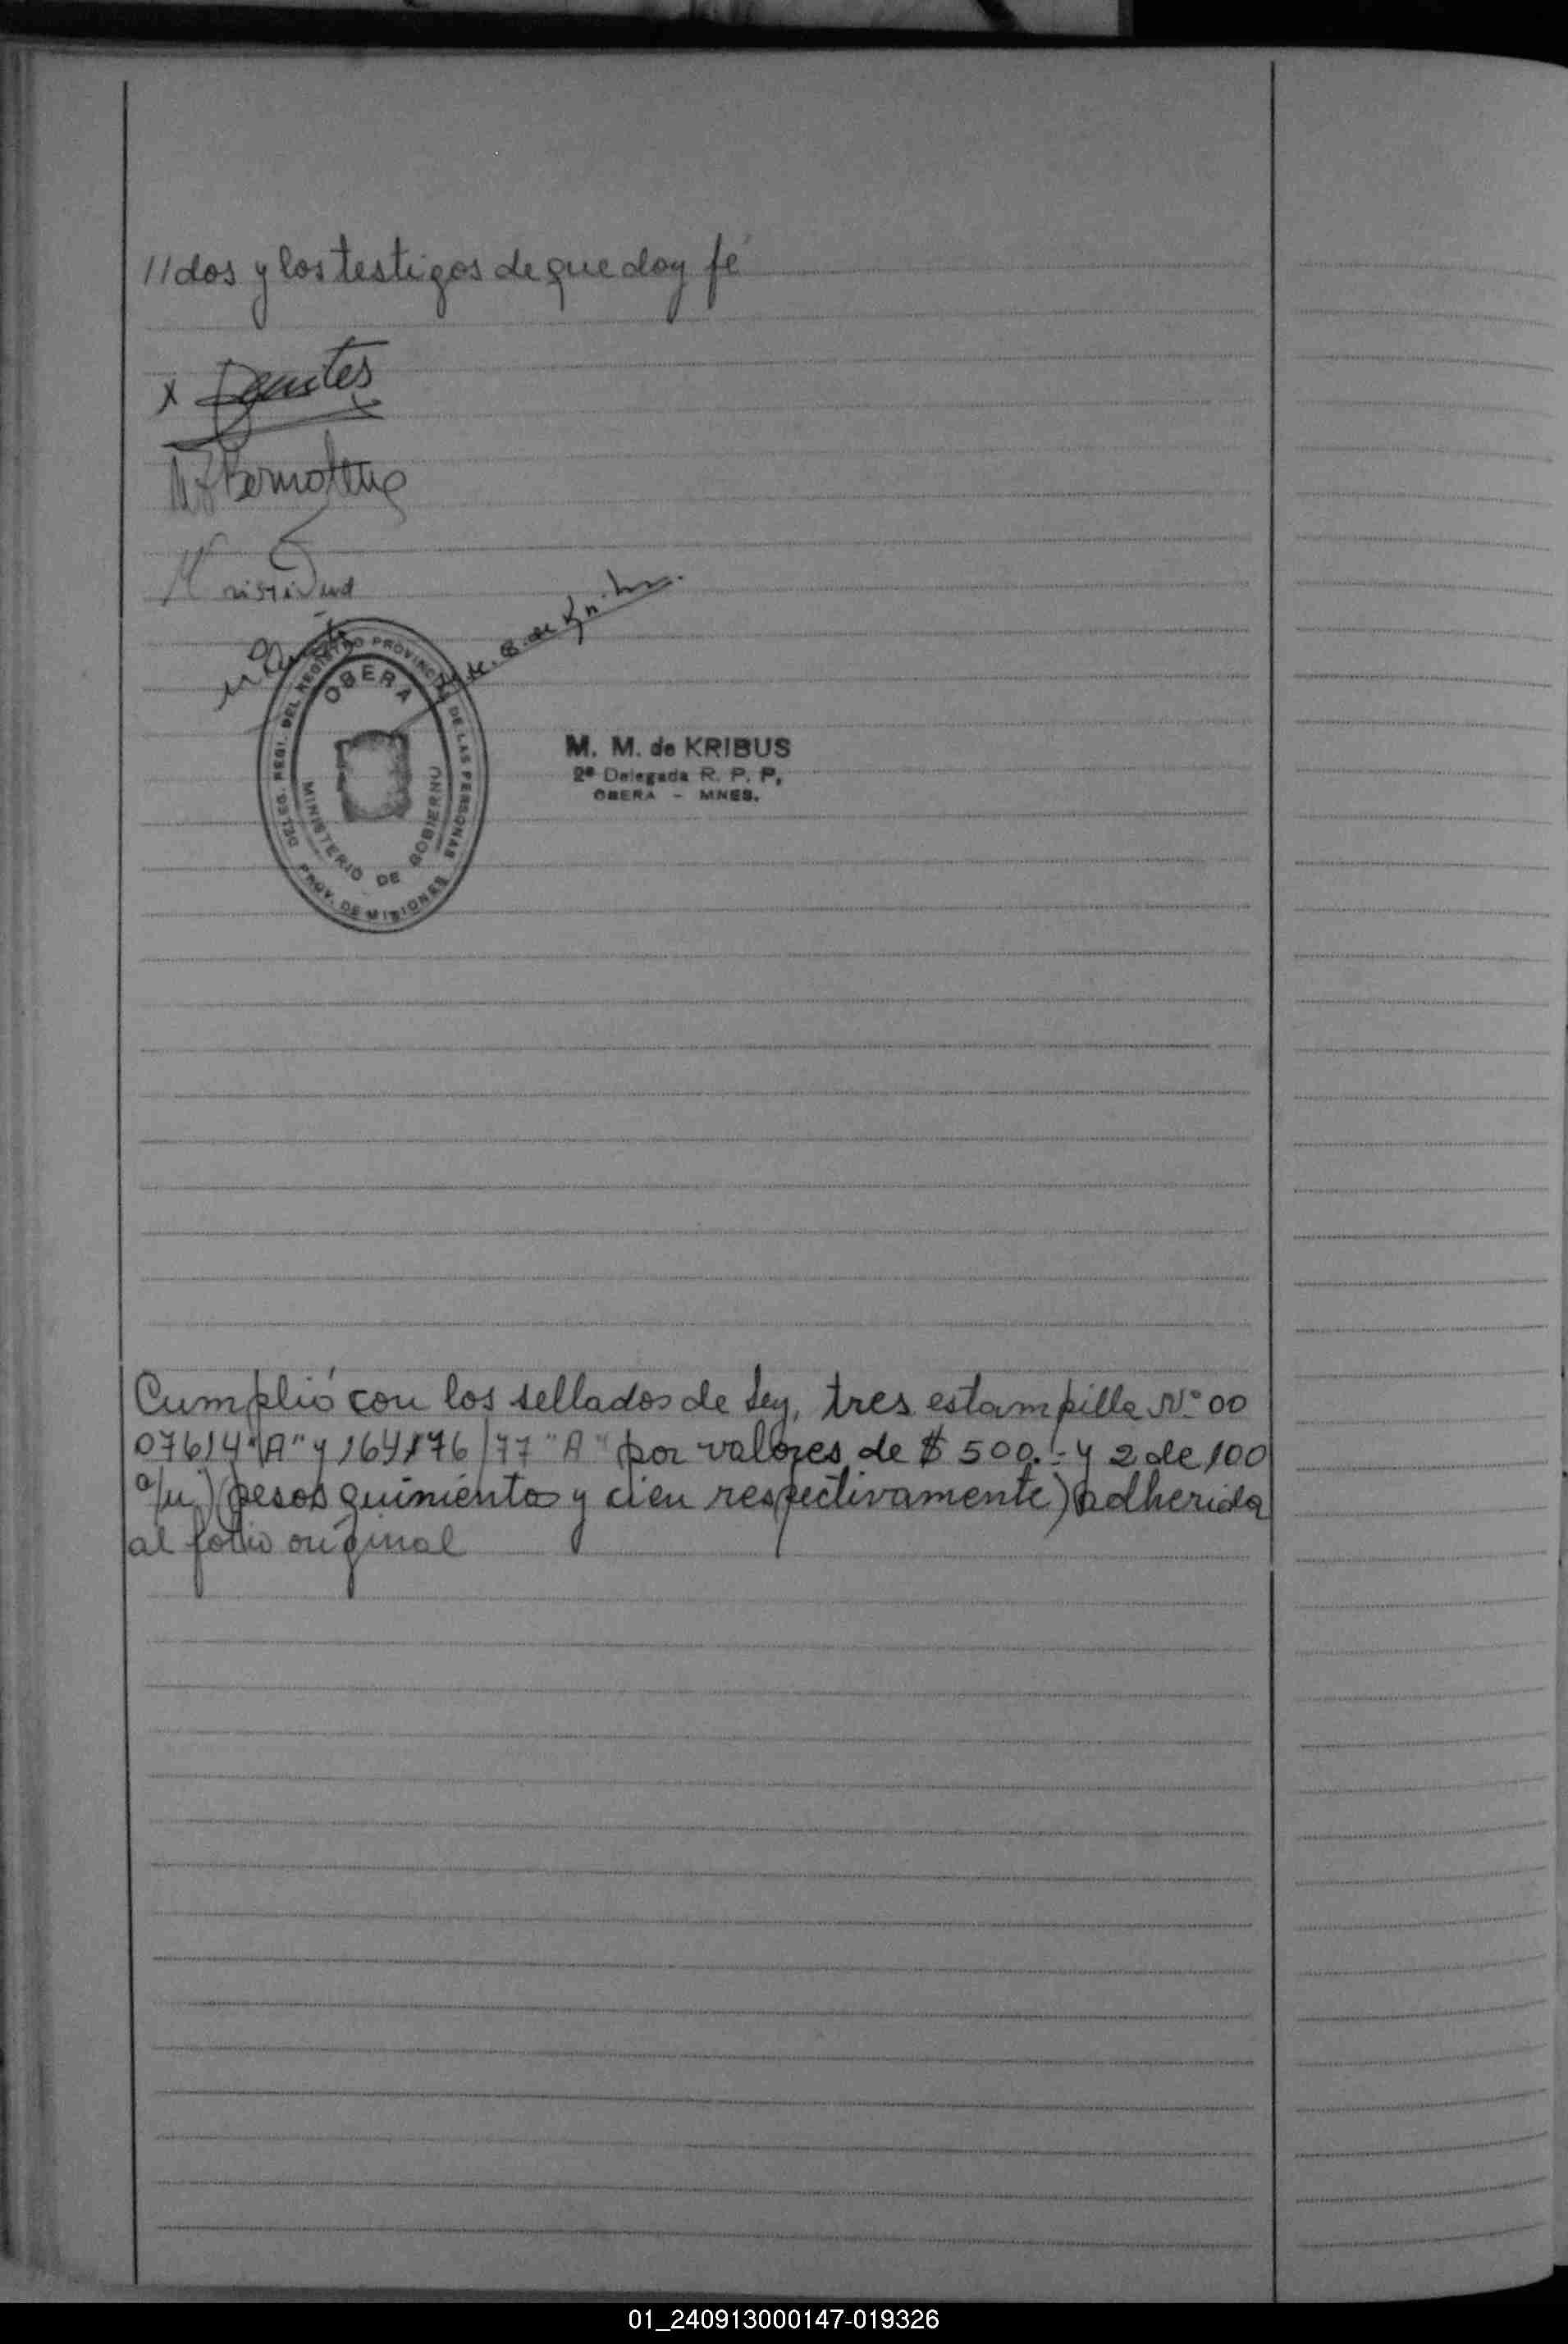 //dos y los testigos de que doy fé
x
DELEG. REGI. DEL REGISTRO PROVINCIAL DE LAS PERSONAS
OBERA
MINISTERIO DE GOBIERNO
PROV. DE MISIONES
M. M. de KRIBUS
2ª Delegada R. P. P.
OBERA - MNES.
Cumplió con los sellados de Ley, tres estampilla Nº 00
07614 "A" y 164176/77 "A" por valores de $ 500.- y 2 de 100
a/u) (pesos quinientos y cien respectivamente) adherida
al folio original
01_240913000147-019326